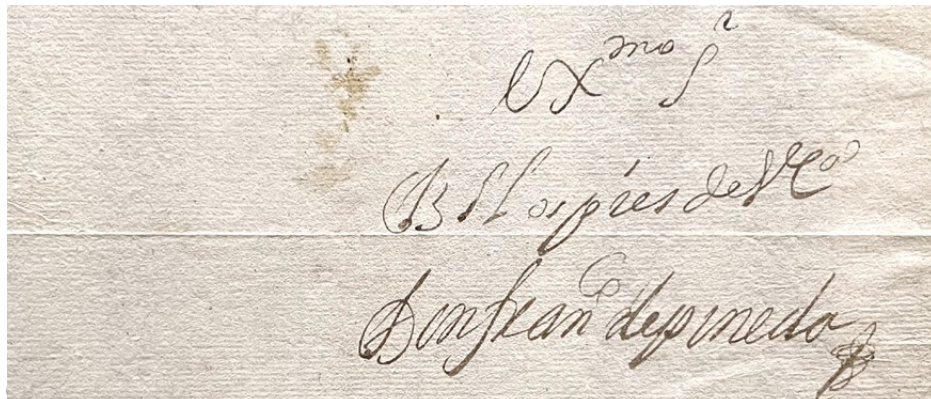 exmo Sr
B L los pies de VExa
Don Franco de pineda